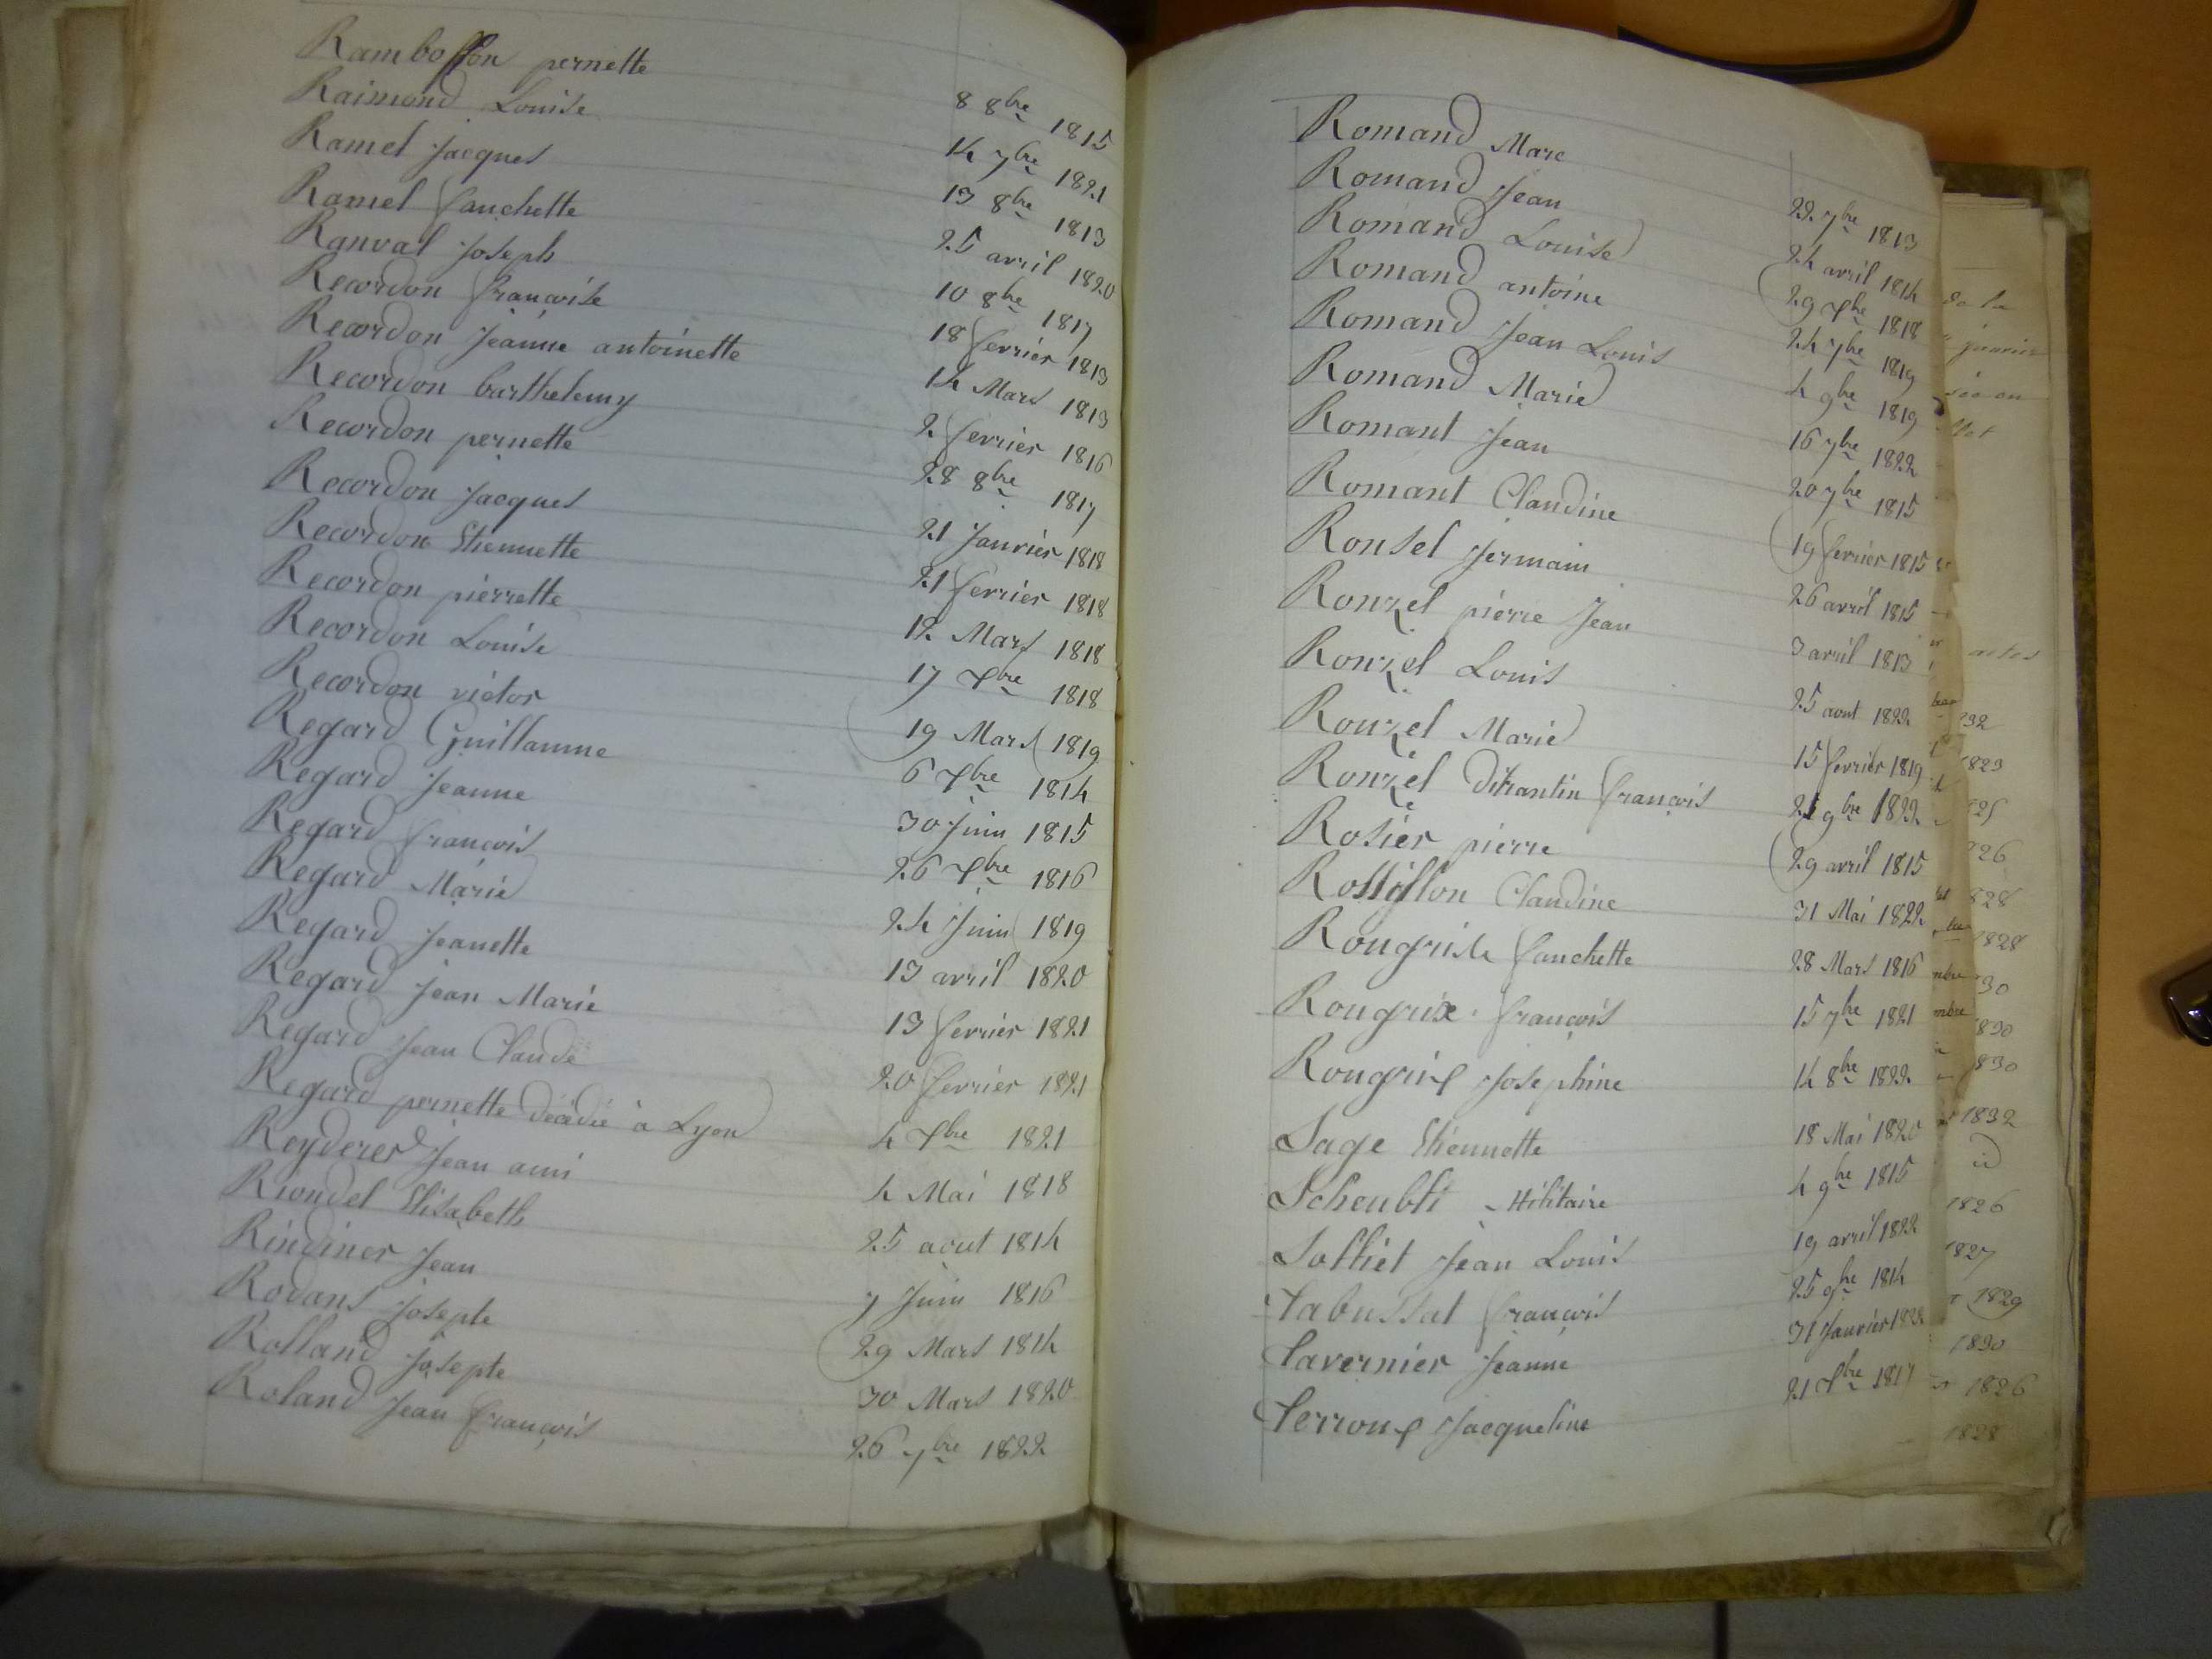 Rambosson pernette 8 8bre 1815
Raimond Louise 14 7bre 1821
Ramel Jacques 13 8bre 1813
Ramel fanchette 25 avril 1820
Ranval Joseph 10 8bre 1817
Recordon francoise 18 fevrier 1813
Recordon Jeanne antoinette 14 Mars 1813
Recordon barthelemy 2 fevrier 1816
Recordon pernette 28 8bre 1817
Recordon Jacques 21 Janvier 1818
Recordon Etiennette 21 fevrier 1818
Recordon pierrette 12 Mars 1818
Recordon Louise 17 Xbre 1818
Recordon victor 19 Mars 1819
Regard Guillaume 6 Xbre 1814
Regard Jeanne 30 Juin 1815
Regard francois 26 Xbre 1816
Regard Marie 24 Juin 1819
Regard Jeanette 13 avril 1820
Regard Jean Marie 13 fevrier 1821
Regard Jean Claude 20 fevrier 1821
Regard pernette décédée à Lyon 4 Xbre 1821
Reyderer Jean ami 4 Mai 1818
Riondel Elisabeth 25 aout 1814
Rindiner Jean 7 Juin 1816
Rodans Josepte 29 Mars 1814
Rolland Josepte 30 Mars 1820
Roland Jean francois 26 7bre 1822
Romand Marc 22 7bre 1813
Romand Jean 24 avril 1814
Romand Louise 29 Xbre 1818
Romand antoine 24 7bre 1819
Romand Jean Louis 4 9bre 1819
Romand Marie 16 7bre 1822
Romant Jean 20 7bre 1815
Romant Claudine 19 fevrier 1815
Ronsel Jermain 26 avril 1815
Ronzel pierre Jean 3 avril 1813
Ronzel Louis 25 aout 1822
Ronzel Marie 15 fevrier 1819
Ronzel francois 25 9bre 1822
Rosier pierre 29 avril 1815
Rossillon Claudine 31 Mai 1822
Rougrise fanchette 28 Mars 1816
Rougrix francois 15 7bre 1821
Rougrix Josephine 14 8bre 1822
Sage Etiennette 18 Mai 1820
Scheubli Militaire 4 9bre 1815
Solliet Jean Louis 19 avril 1822
Tabussat francois 25 9bre 1814
Tavernier Jeanne 31 Janvier 1822
Terroux Jacqueline 21 Xbre 1817